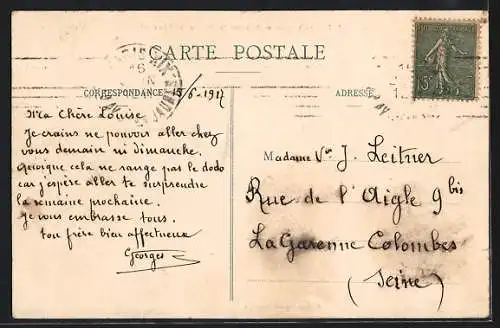 CARTE POSTALE
CORRESPONDANCE
ADRESSE
15/6-1917
Ma Chère Louise
Je crains ne pouvoir aller chez
vous demain ni dimanche.
Quoique cela ne range pas le dodo
car j'espère aller te surprendre
la semaine prochaine.
Je vous embrasse tous.
ton frère bien affectueux
Georges
Madame Vve J. Leitner
Rue de l'Aigle 9 bis
La Garenne Colombes
(Seine)